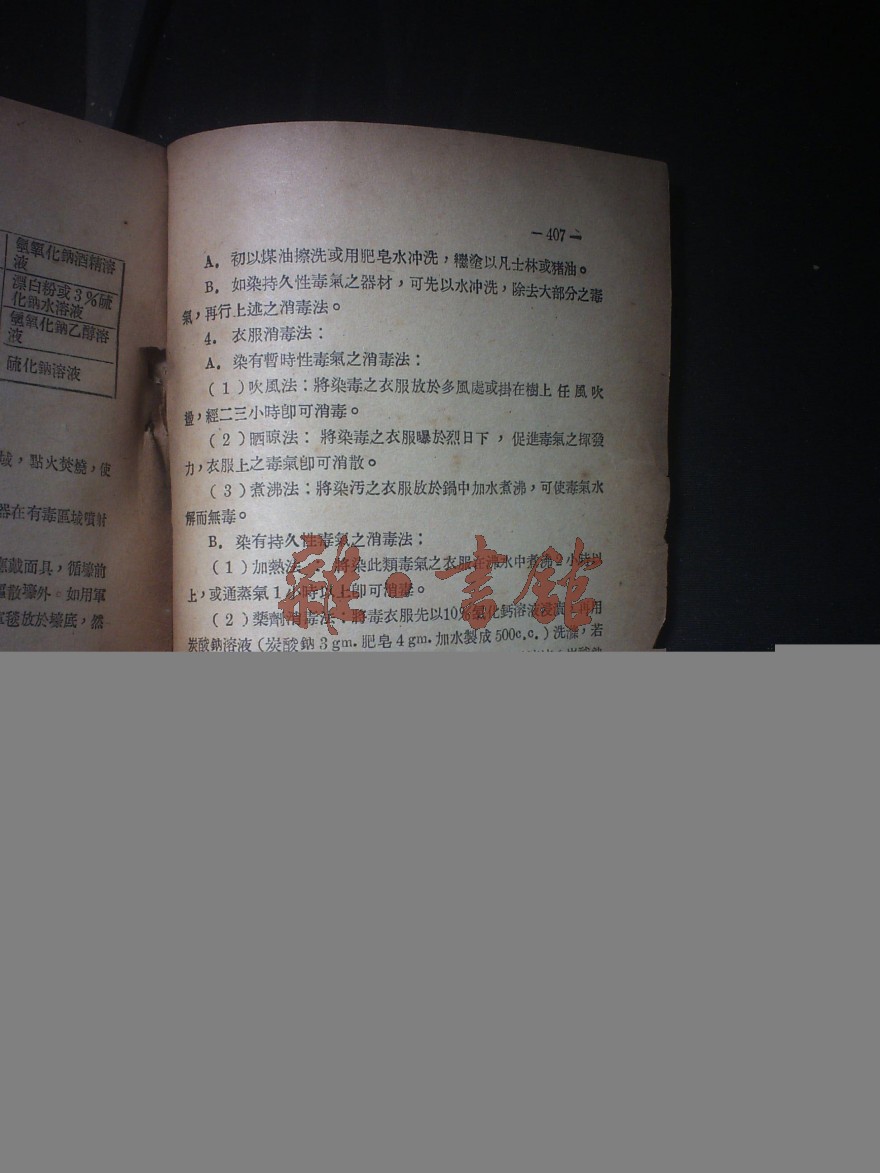 氫氧化鈉酒精溶
液
漂白粉或3%硫
化鈉水溶液
氫氧化鈉乙醇溶
液
硫化鈉溶液
域，點火焚燒，使
器在有毒區域噴射
戴面具，循壕前
散壕外。如用軍
毯放於壕底，然
—407—
A．初以煤油擦洗或用肥皂水冲洗，繼塗以凡士林或豬油。
B．如染持久性毒氣之器材，可先以水冲洗，除去大部分之毒
氣，再行上述之消毒法。
4．衣服消毒法：
A．染有暫時性毒氣之消毒法：
(1)吹風法：將染毒之衣服放於多風處或掛在樹上任風吹
盪，經二三小時卽可消毒。
(2)晒晾法：將染毒之衣服曝於烈日下，促進毒氣之揮發
力，衣服上之毒氣卽可消散。
(3)煮沸法：將染汚之衣服放於鍋中加水煮沸，可使毒氣水
解而無毒。
B．染有持久性毒氣之消毒法：
(1)加熱法：將染此類毒氣之衣服在沸水中煮沸2小時以
上，或通蒸氣1小時以上卽可消毒。
(2)藥劑消毒法：將毒衣服先以10%氯化鈣溶液浸潤，再用
炭酸鈉溶液（炭酸鈉3gm.肥皂4gm.加水製成500c.c.）洗滌，若
雜·書館